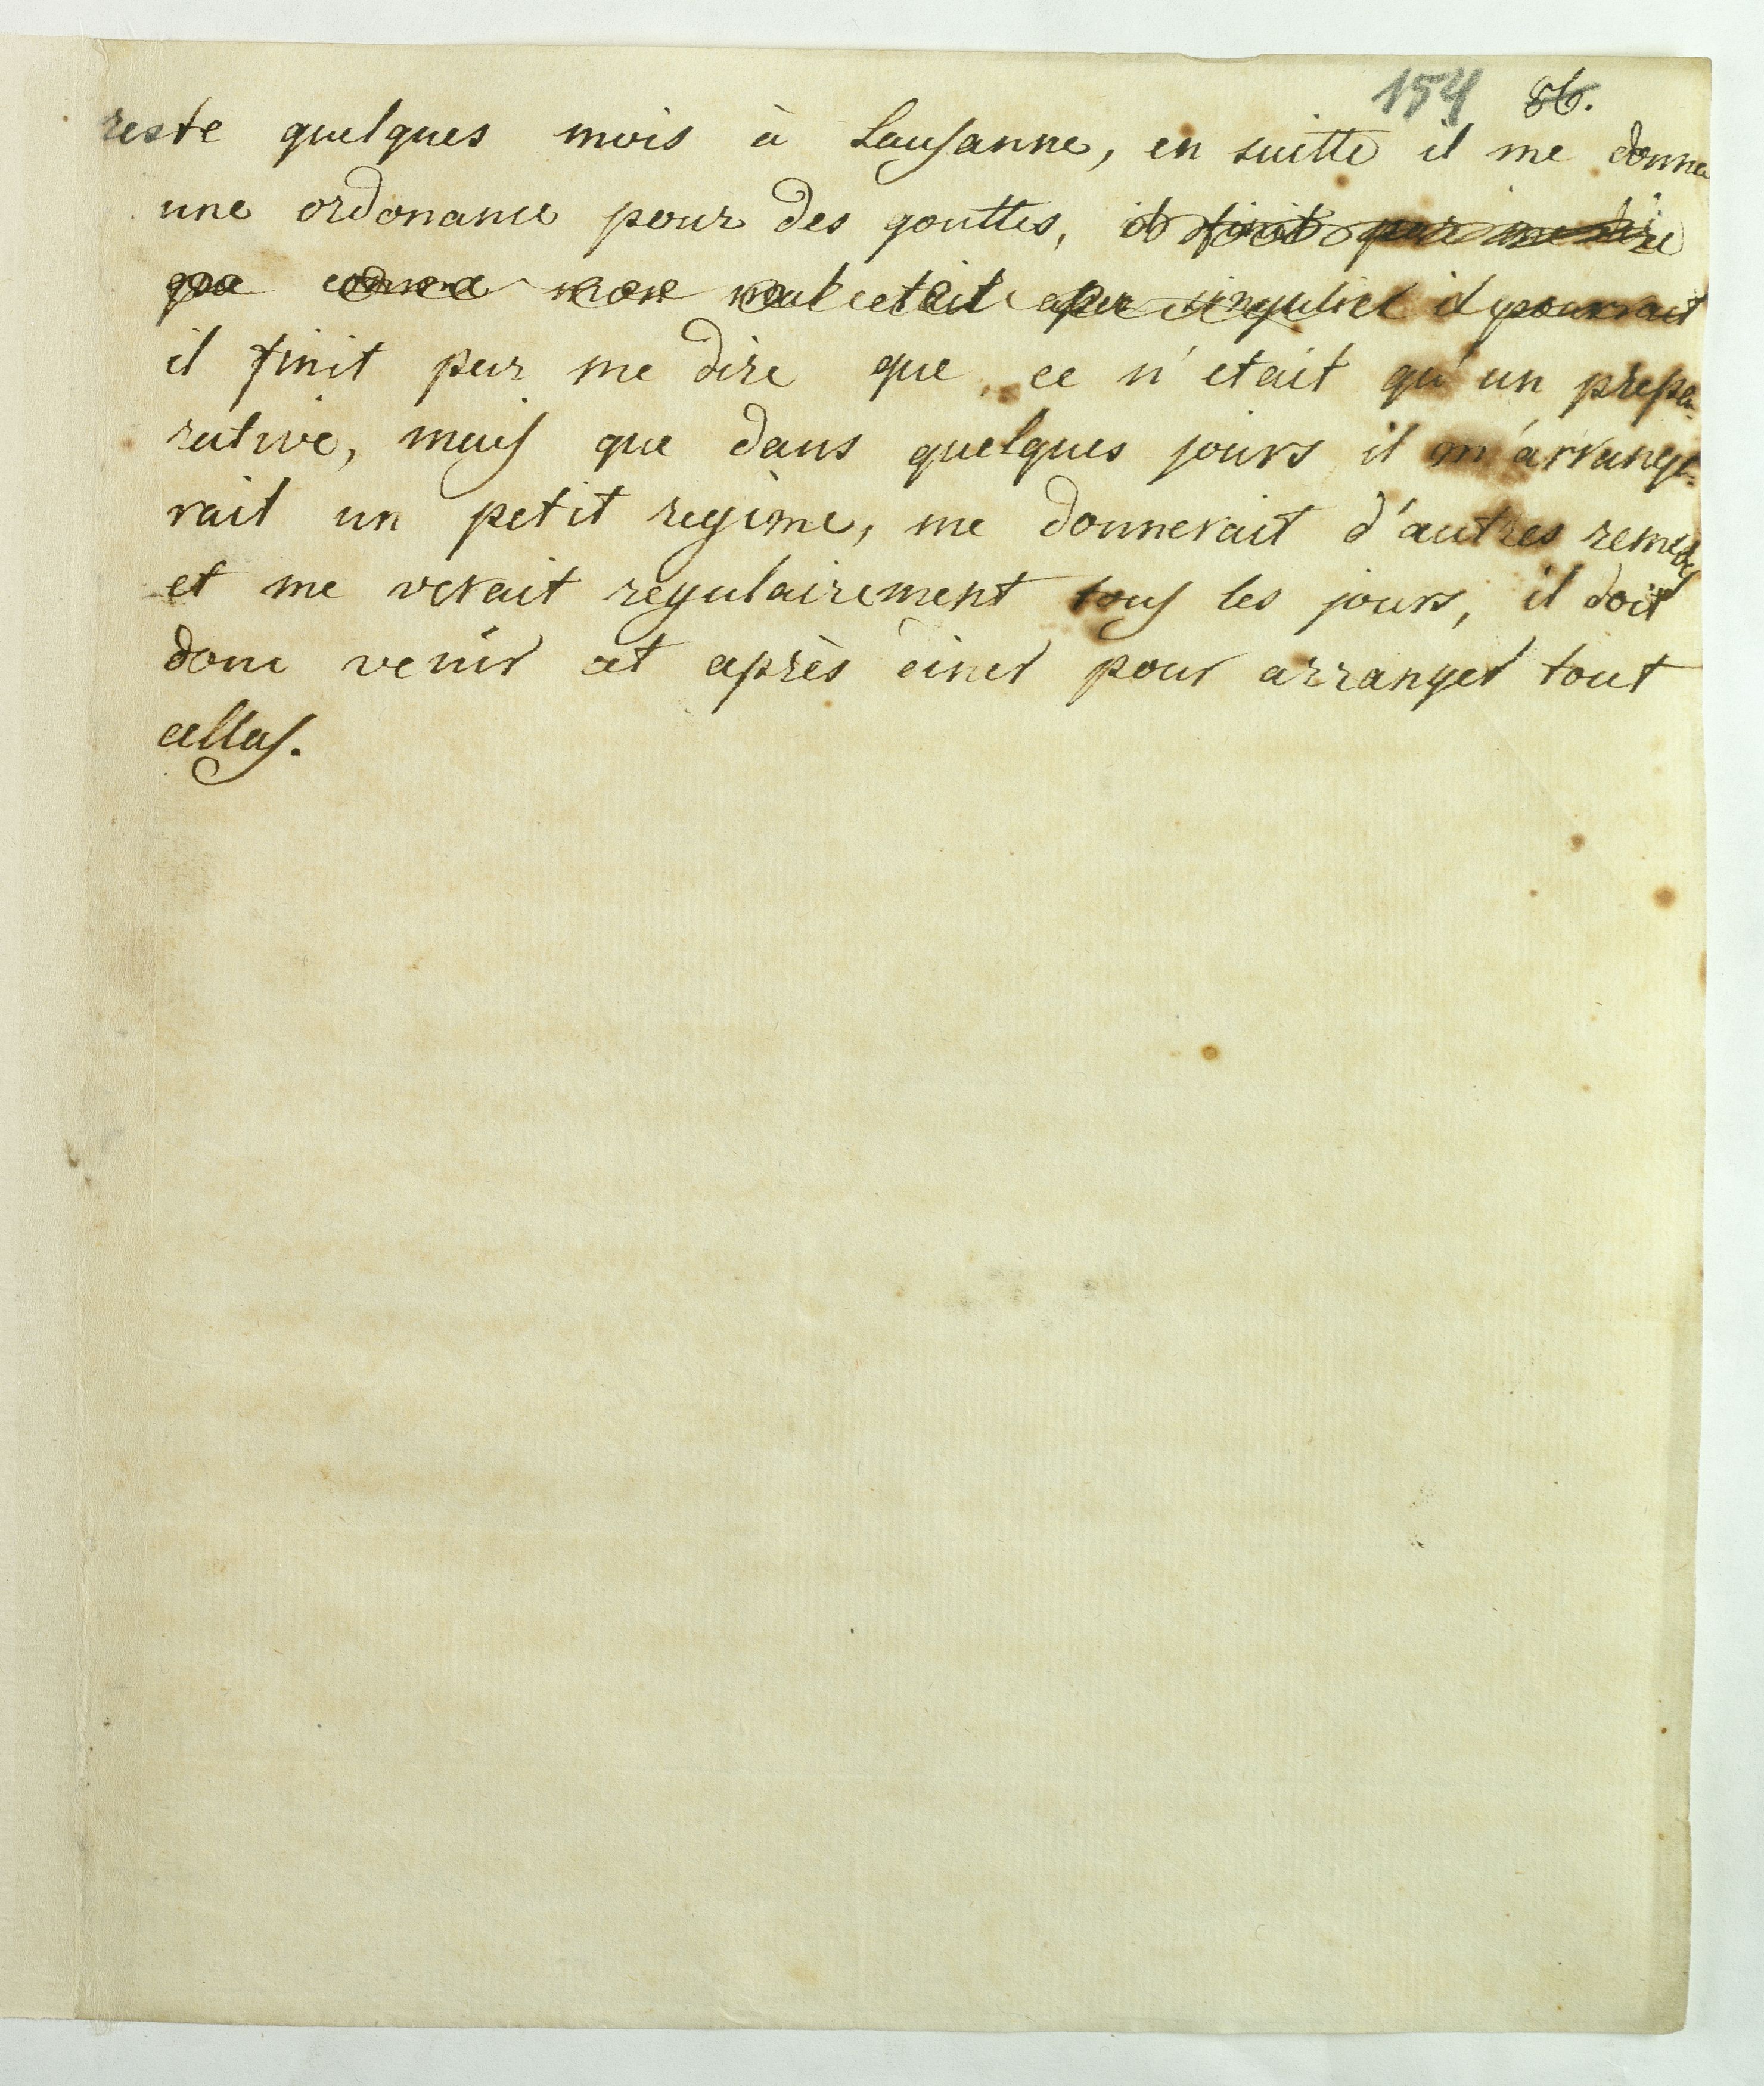 154 86.
reste quelques mois à Lausanne, en suitte il me donna
une ordonance pour des gouttes, il finit par me dire
que comme mon mal etait singulier il pourrait
il finit par me dire que ce n'etait qu'un prepa-
rative, mais que dans quelques jours il m'arrange-
rait un petit regime, me donnerait d'autres remedes
et me verait regulairement tous les jours, il doit
donc venir at après diner pour arranger tout
cellas.